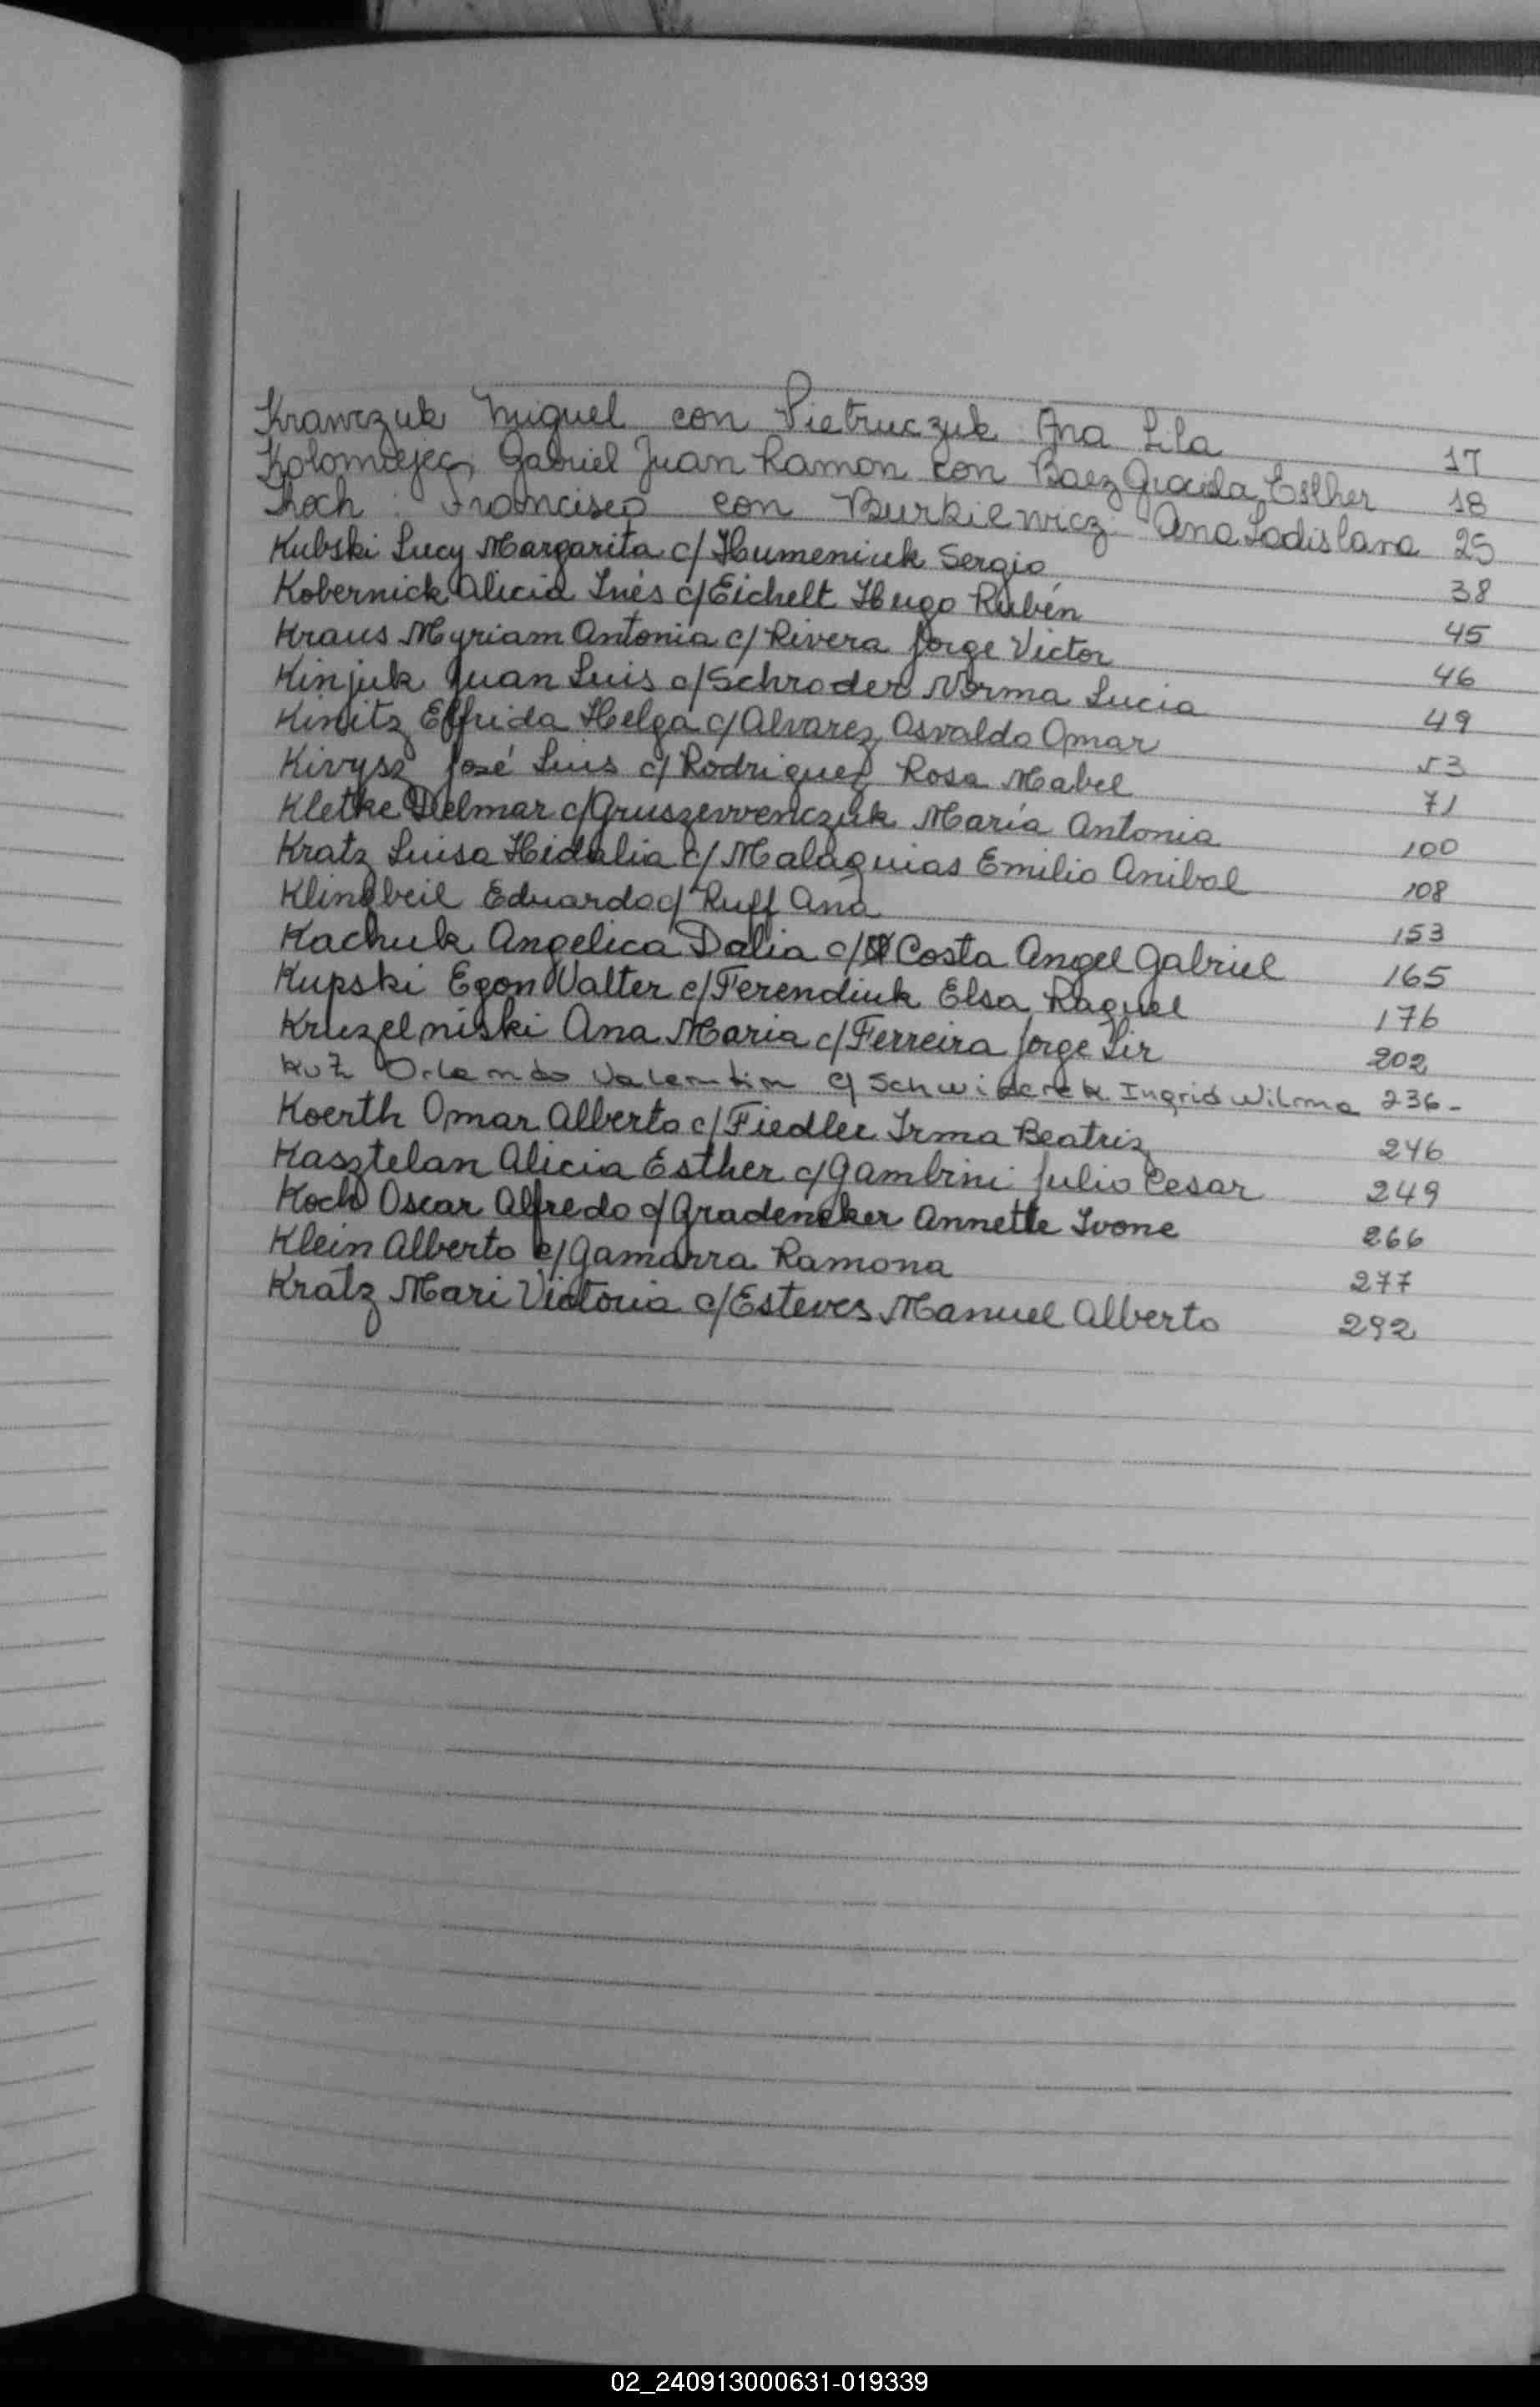 Krawczuk Miguel con Pietruczuk Ana Lila 17
Kolomiejec, Gabriel Juan Ramon con Baez Graciela Esther 18
Koch Francisco con Burkiewicz Ana Ladislava 25
Kubski Lucy Margarita c/ Humeniuk Sergio 38
Kobernick Alicia Inés c/ Eichelt Hugo Rubén 45
Kraus Myriam Antonia c/ Rivera Jorge Victor 46
Kinjuk Juan Luis c/ Schroder Norma Lucia 49
Kinitz Elfrida Helga c/ Alvarez Osvaldo Omar 53
Kivysz José Luis c/ Rodriguez Rosa Mabel 71
Kletke Delmar c/ Gruszewenczuk María Antonia 100
Kratz Luisa Hidalia c/ Malaquias Emilio Anibal 108
Klingbeil Eduardo c/ Ruff Ana 153
Kachuk Angelica Dalia c/ Costa Angel Gabriel 165
Kupski Egon Walter c/ Ferendiuk Elsa Raquel 176
Kruzelniski Ana Maria c/ Ferreira Jorge Lir 202
Kuz Orlando Valentin c/ Schwiderek Ingrid Wilma 236-
Koerth Omar Alberto c/ Fiedler Irma Beatriz 246
Kasztelan Alicia Esther c/ Gambrini Julio Cesar 249
Koch Oscar Alfredo c/ Gradeneker Annette Ivone 266
Klein Alberto c/ Gamarra Ramona 277
Kratz Mari Victoria c/ Esteves Manuel Alberto 292
02_240913000631-019339